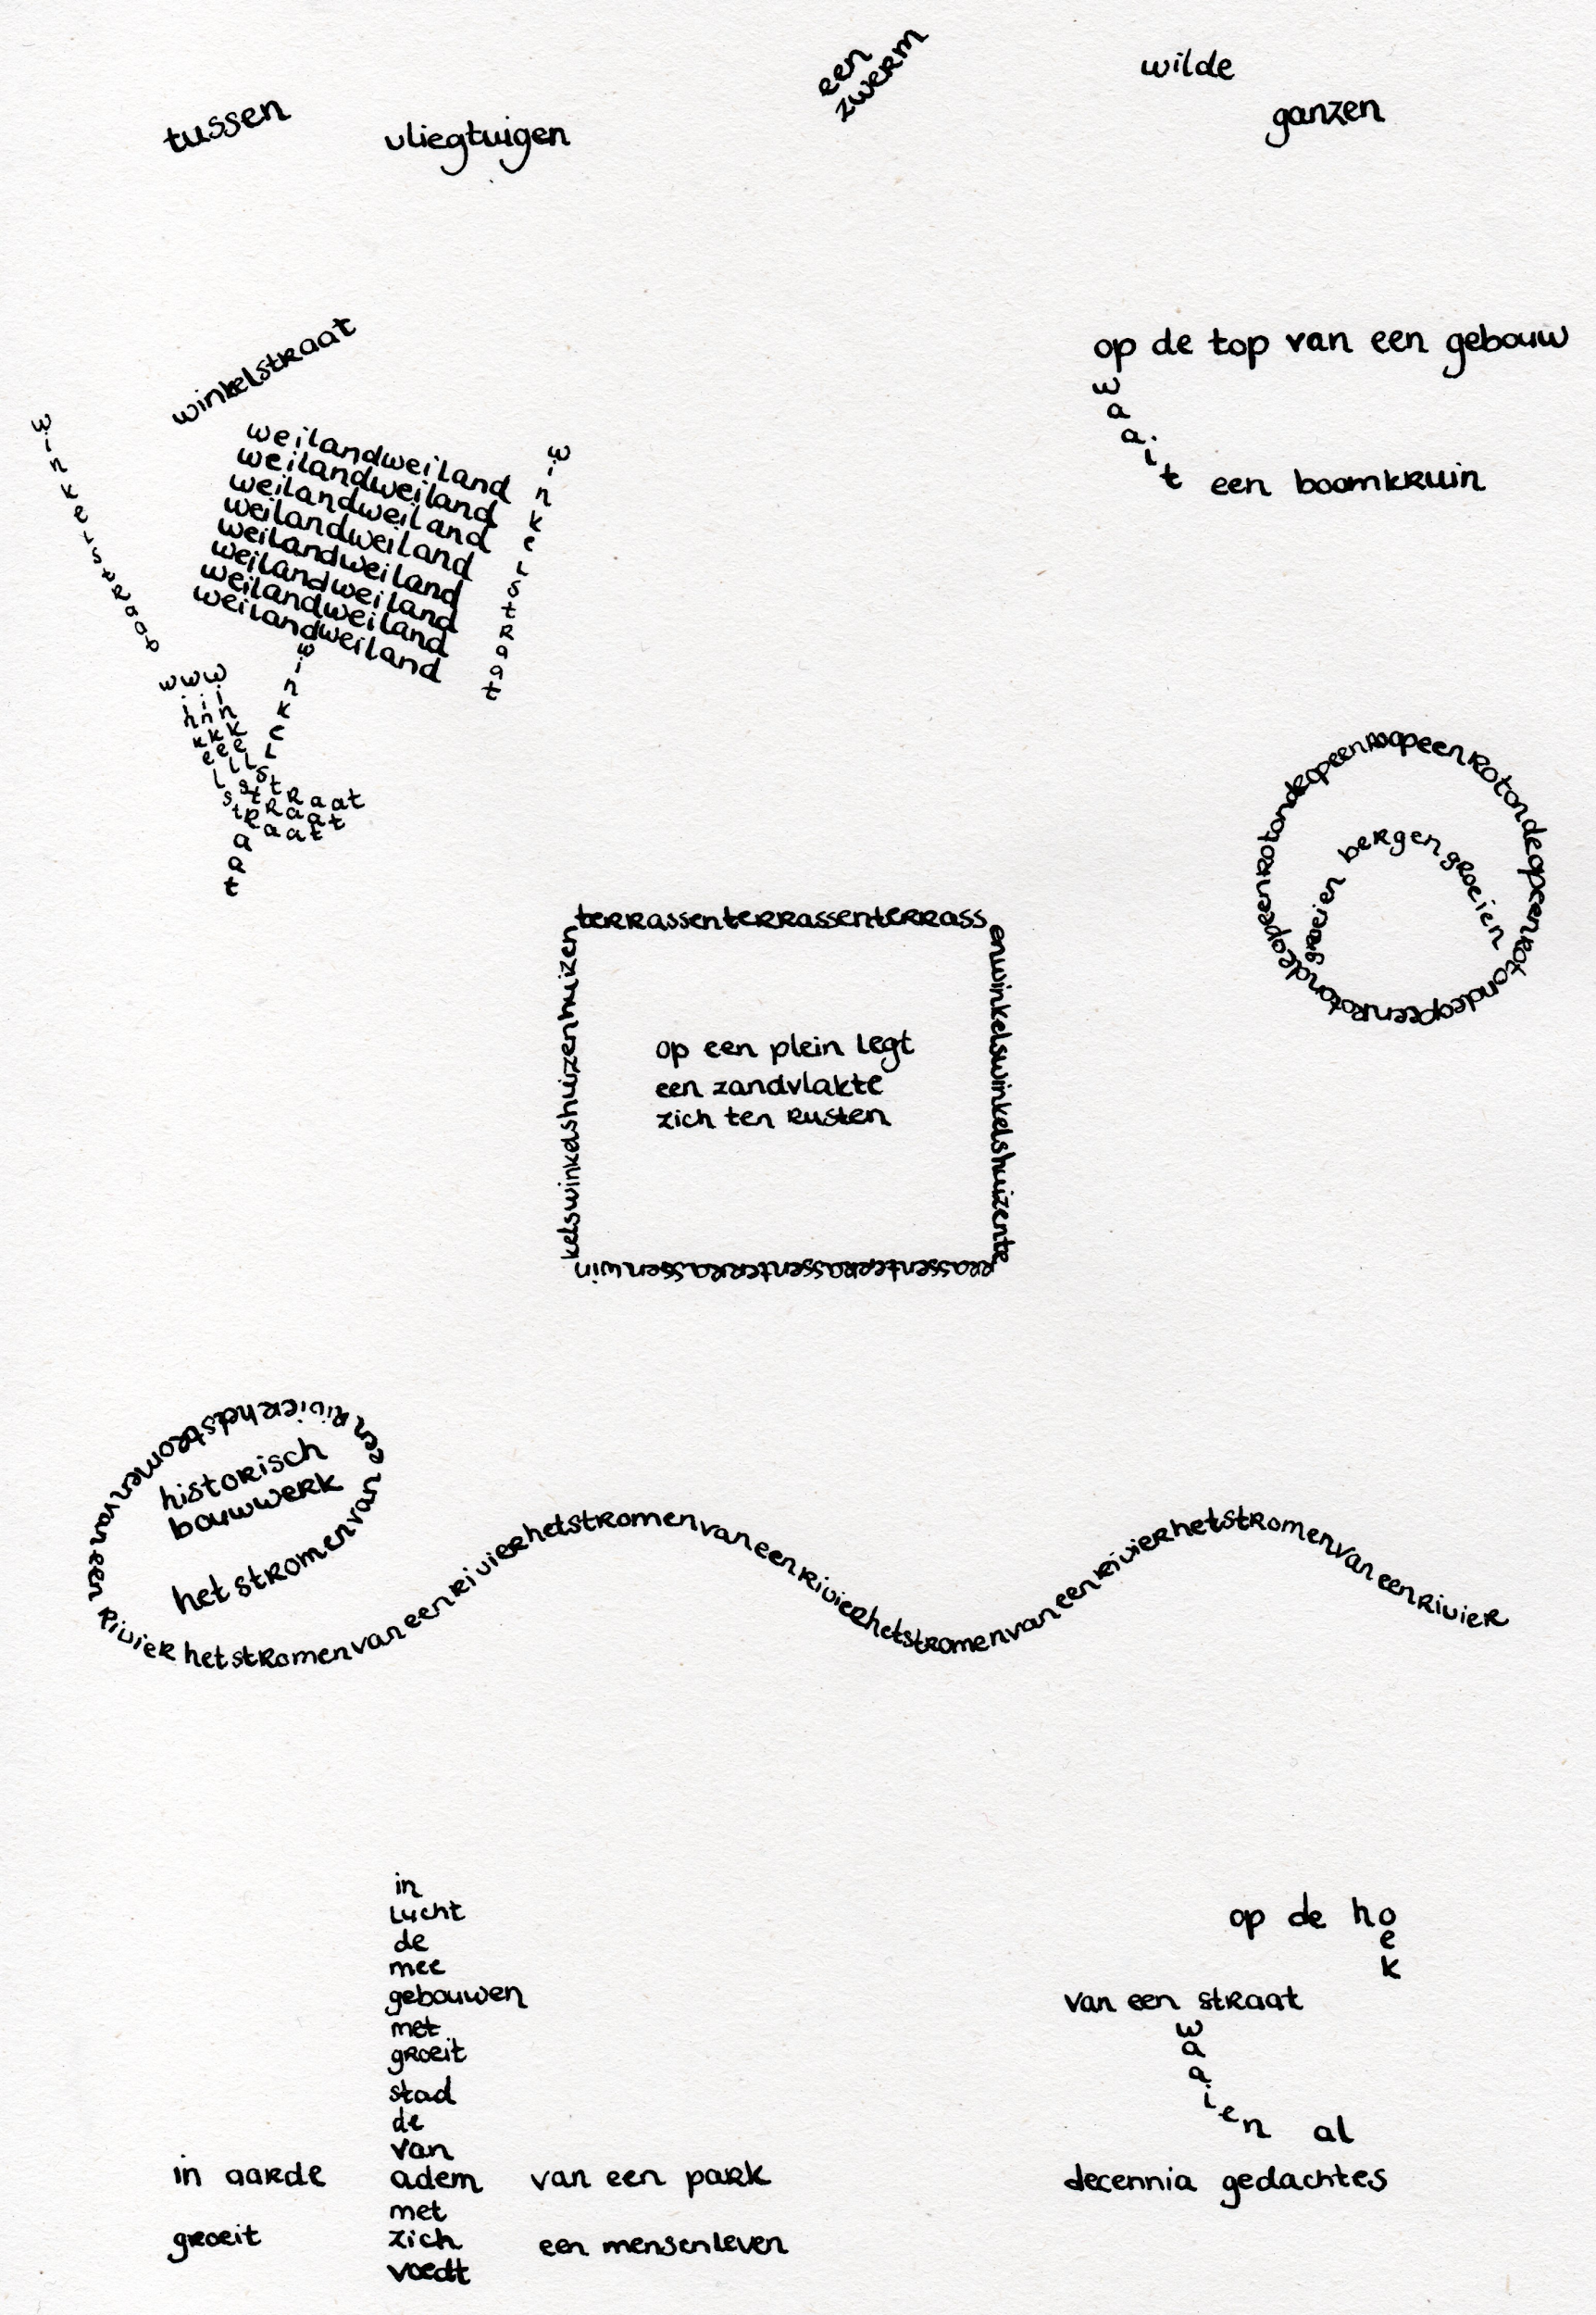 tussen
vliegtuigen
een
zwerm
wilde
ganzen
winkelstraat
winkelstraat
weilandweiland
weilandweiland
weilandweiland
weilandweiland
weilandweiland
weilandweiland
weilandweiland
weilandweiland
winkelstraat
winkelstraat
winkelstraat
winkelstraat
winkelstraat
op de top van een gebouw
waait
een boomkruin
opeenrotondeopeenrotondeopeenrotondeopeenrotondeopeen
groeien bergen groeien
terrassenterrassenterrass
enwinkelswinkelshuizente
rrassenterrassenterrassenwin
kelswinkelshuizenhuizen
op een plein legt
een zandvlakte
zich ten rusten
historisch
bouwwerk
het stromen van een rivier het stromen van een rivier het stromen van een rivier het stromen van een rivier het stromen van een rivier het stromen van een rivier
in
lucht
de
mee
gebouwen
met
groeit
stad
de
van
in aarde adem van een park
met
groeit zich een mensenleven
voedt
op de hoek
van een straat
waaien al
decennia gedachtes